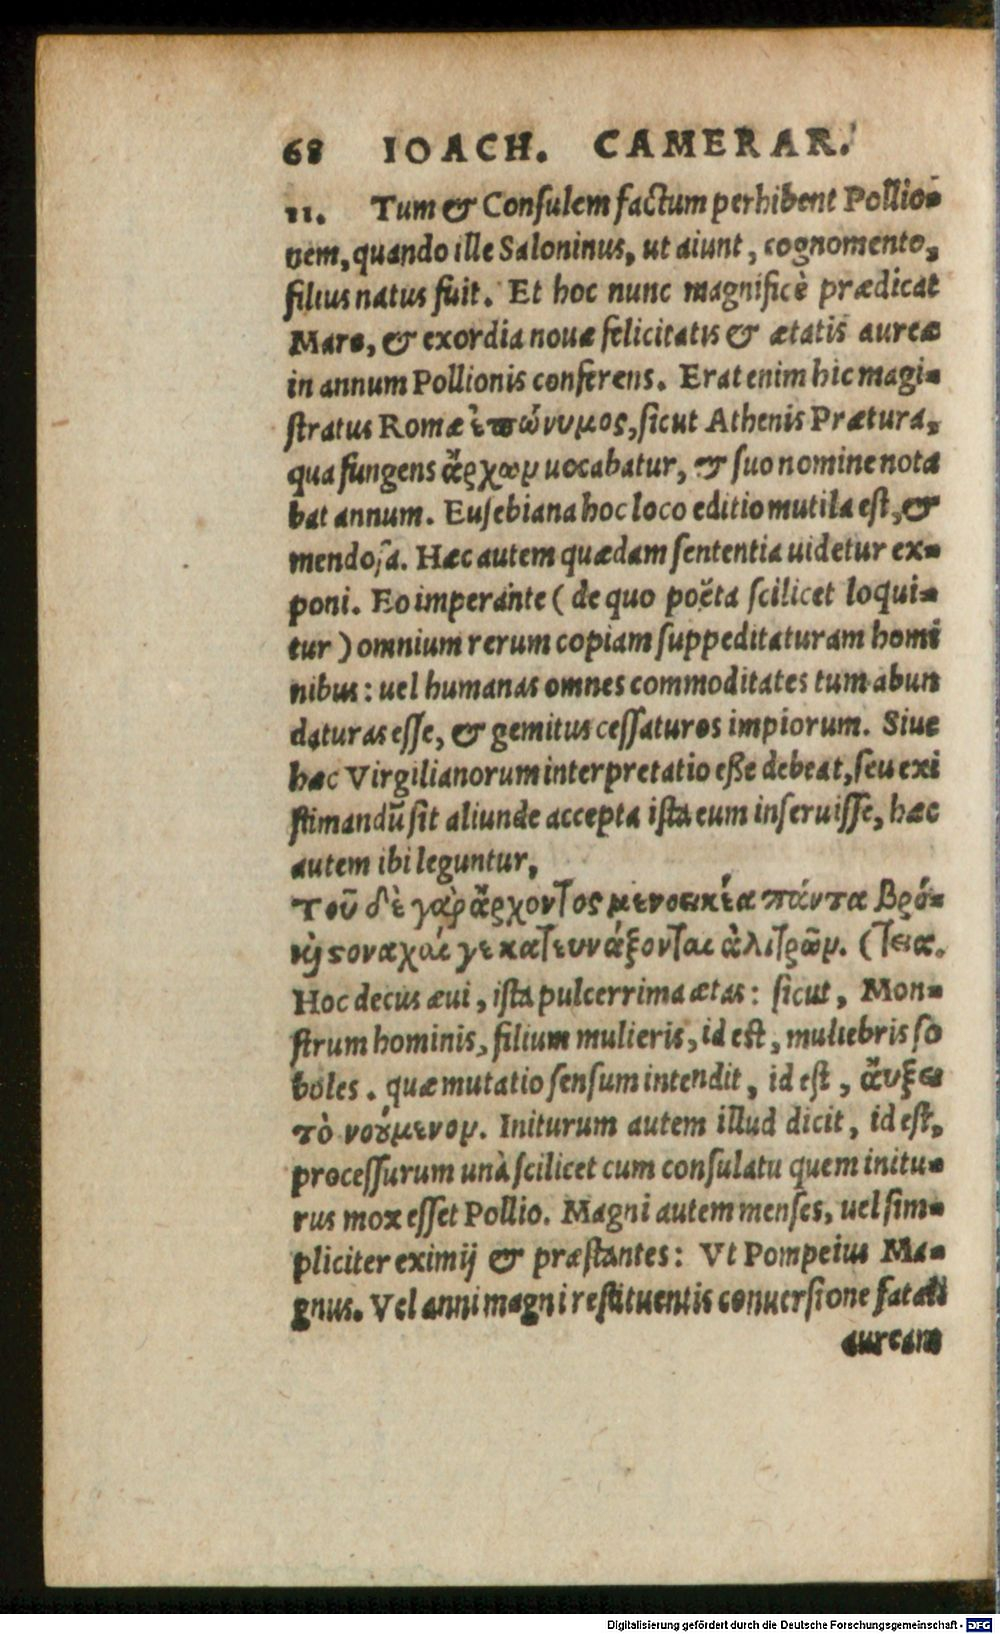 68 IOACH. CAMERAR.
11. Tum & Consulem factum perhibent Pollio-
nem, quando ille Saloninus, ut aiunt, cognomento,
filius natus fuit. Et hoc nunc magnificè prædicat
Maro, & exordia nouæ felicitatis & ætatis aureæ
in annum Pollionis conferens. Erat enim hic magi-
stratus Romæ ἐπώνυμος, sicut Athenis Prætura,
qua fungens ἄρχωμ uocabatur, & suo nomine nota
bat annum. Eusebiana hoc loco editio mutila est, &
mendosa. Hæc autem quædam sententia uidetur ex-
poni. Eo imperante (de quo poëta scilicet loqui-
tur) omnium rerum copiam suppeditaturam homi
nibus: uel humanas omnes commoditates tum abun
daturas esse, & gemitus cessaturos impiorum. Siue
hæc Virgilianorum interpretatio eße debeat, seu exi
stimandũ sit aliunde accepta ista eum inseruisse, hæc
autem ibi leguntur,
Τοῦ δὲ γὰρ ἄρχοντος μενοεικέα πάντα βρό-
κỳ στοναχαί γε κατευνάξονται ἀλιτρῶμ. (τεια.
Hoc decus æui, ista pulcerrima ætas: sicut, Mon-
strum hominis, filium mulieris, id est, muliebris so
boles. quæ mutatio sensum intendit, id est, ἄυξει
τὸ νούμενομ. Initurum autem illud dicit, id est,
processurum unà scilicet cum consulatu quem initu-
rus mox esset Pollio. Magni autem menses, uel sim-
pliciter eximij & præstantes: Vt Pompeius Ma-
gnus. Vel anni magni restituentis conuersione fatali
auream
Digitalisierung gefördert durch die Deutsche Forschungsgemeinschaft - DFG